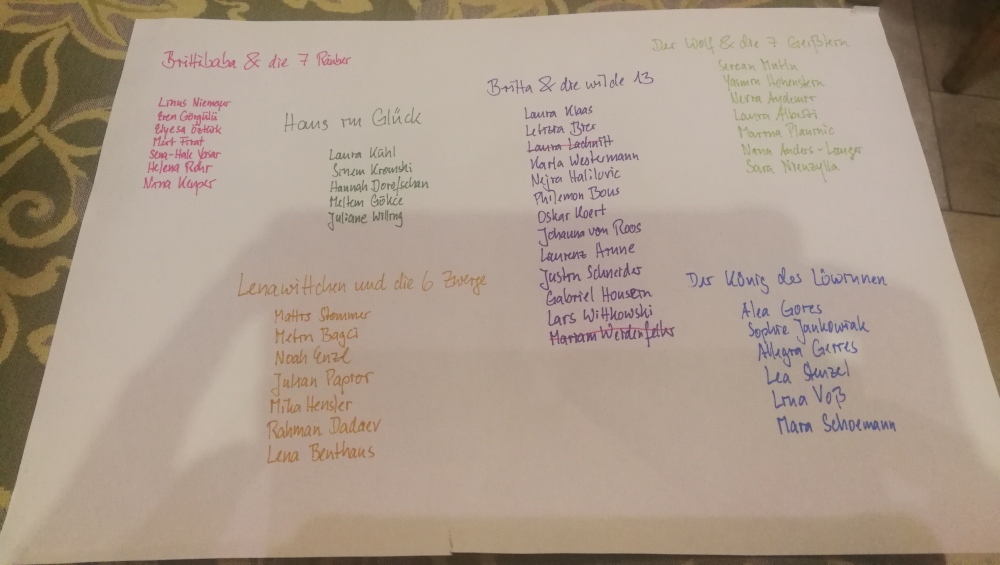 Brittibaba & die 7 Räuber
Linus Niemeyer
Eren Görgülü
Elyesa Öztürk
Mert Firat
Sena-Hale Yasar
Helena Rohr
Nina Keyper
Hans im Glück
Laura Kühl
Sinem Kromski
Hannah
Meltem Gökce
Juliane Willing
Britta & die wilde 13
Laura Klaas
Letizia Bier
Laura Lachnitt
Karla Westermann
Nejra Halilovic
Philemon Bous
Oskar Koert
Johanna von Roos
Laurenz
Justin Schneider
Gabriel
Lars Wittkowski
Mariam Weidenfeller
Der Wolf & die 7 Geißlein
Sercan Mutlu
Yasmin Hohenstern
Laura
Marina
Nena Anders-Langer
Sara
Lenawittchen und die 6 Zwerge
Mattis Stommer
Metin Bagci
Noah Enzel
Julian Papior
Mika Hensler
Rahman Dadaev
Lena Benthaus
Der König des Löwinnen
Alea Gores
Sophie Jankowiak
Allegra Gerres
Lea Stenzel
Lina Voß
Mara Schoemann